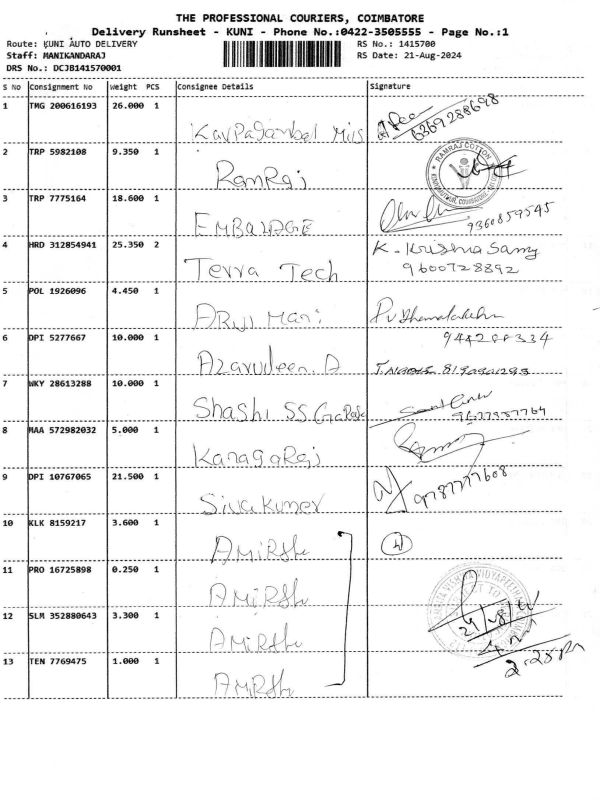 THE PROFESSIONAL COURIERS, COIMBATORE
Delivery Runsheet - KUNI - Phone No.:0422-3505555 - Page No.:1
Route: KUNI AUTO DELIVERY RS No.: 1415700
Staff: MANIKANDARAJ RS Date: 21-Aug-2024
DRS No.: DCJB141570001
S No Consignment No Weight PCS Consignee Details Signature
1 TMG 200616193 26.000 1 Mills 6369288698
2 TRP 5982108 9.350 1 RamRaj RAMRAJ COTTON
3 TRP 7775164 18.600 1 EMBALAGE 9360859545
4 HRD 312854941 25.350 2 Terra Tech K. Krishna Samy
9600728892
5 POL 1926096 4.450 1 Mani
6 DPI 5277667 10.000 1 Azarudeen. A
7 WKY 28613288 10.000 1 Shashi SS Garage
8 MAA 572982032 5.000 1 KanagaRaj
9 DPI 10767065 21.500 1 Siva Kumar
10 KLK 8159217 3.600 1 AMIRtha
11 PRO 16725898 0.250 1 AMIRtha
12 SLM 352880643 3.300 1 AMIRtha
13 TEN 7769475 1.000 1 AMIRtha